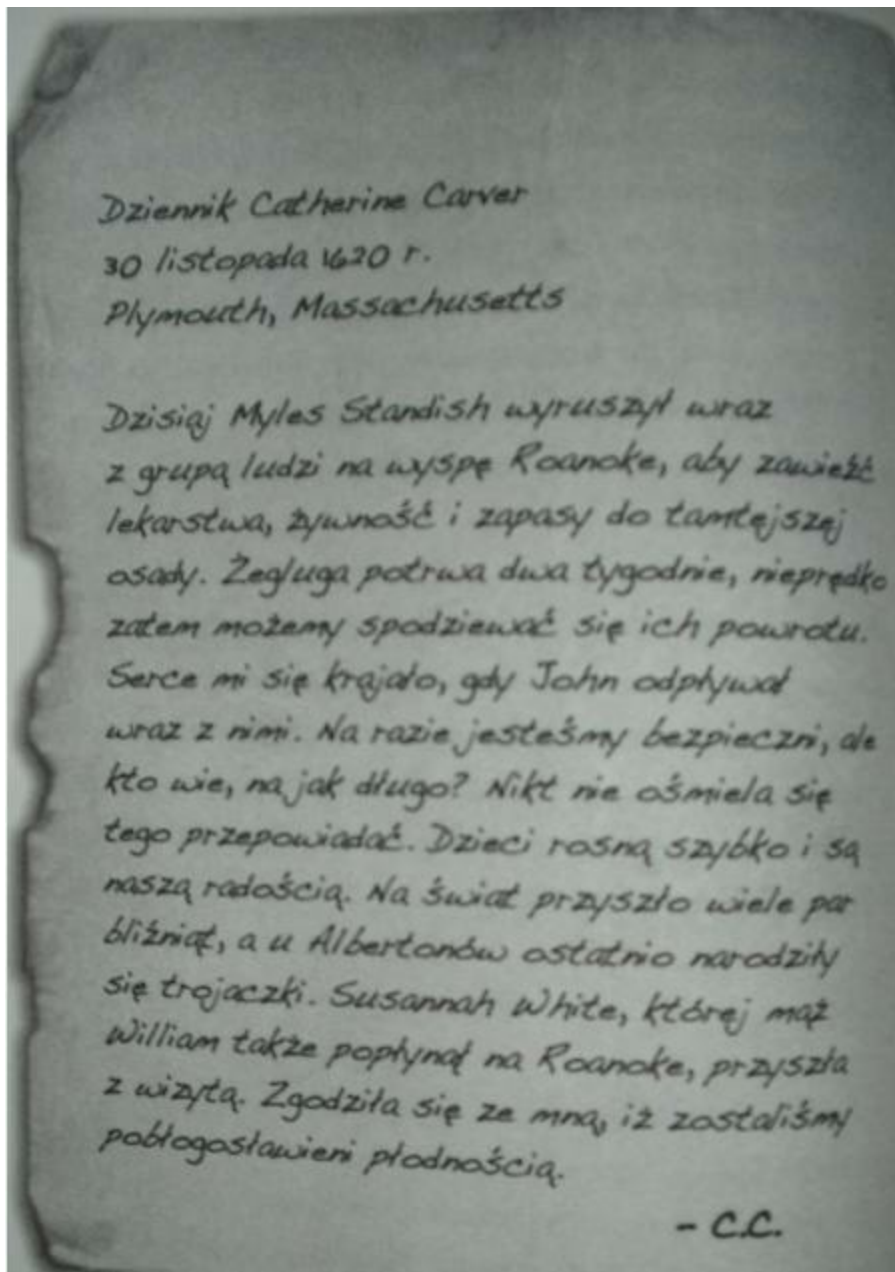 Dziennik Catherine Carver
30 listopada 1620 r.
Plymouth, Massachusetts
Dzisiaj Myles Standish wyruszył wraz
z grupą ludzi na wyspę Roanoke, aby zawieźć
lekarstwa, żywność i zapasy do tamtejszej
osady. Żegluga potrwa dwa tygodnie, nieprędko
zatem możemy spodziewać się ich powrotu.
Serce mi się krajało, gdy John odpływał
wraz z nimi. Na razie jesteśmy bezpieczni, ale
kto wie, na jak długo? Nikt nie ośmiela się
tego przepowiadać. Dzieci rosną szybko i są
naszą radością. Na świat przyszło wiele par
bliźniąt, a u Albertonów ostatnio narodziły
się trojaczki. Susannah White, której mąż
William także popłynął na Roanoke, przyszła
z wizytą. Zgodziła się ze mną, iż zostaliśmy
pobłogosławieni płodnością.
- C.C.